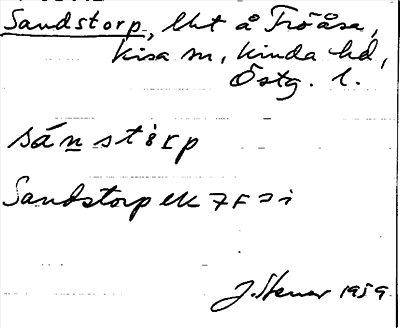 Sandstorp, lht å Fröåsa,
Kisa sn, Kinda hd,
Östg. l.
sánstårp
Sandstorp ek 7F 2i
1959